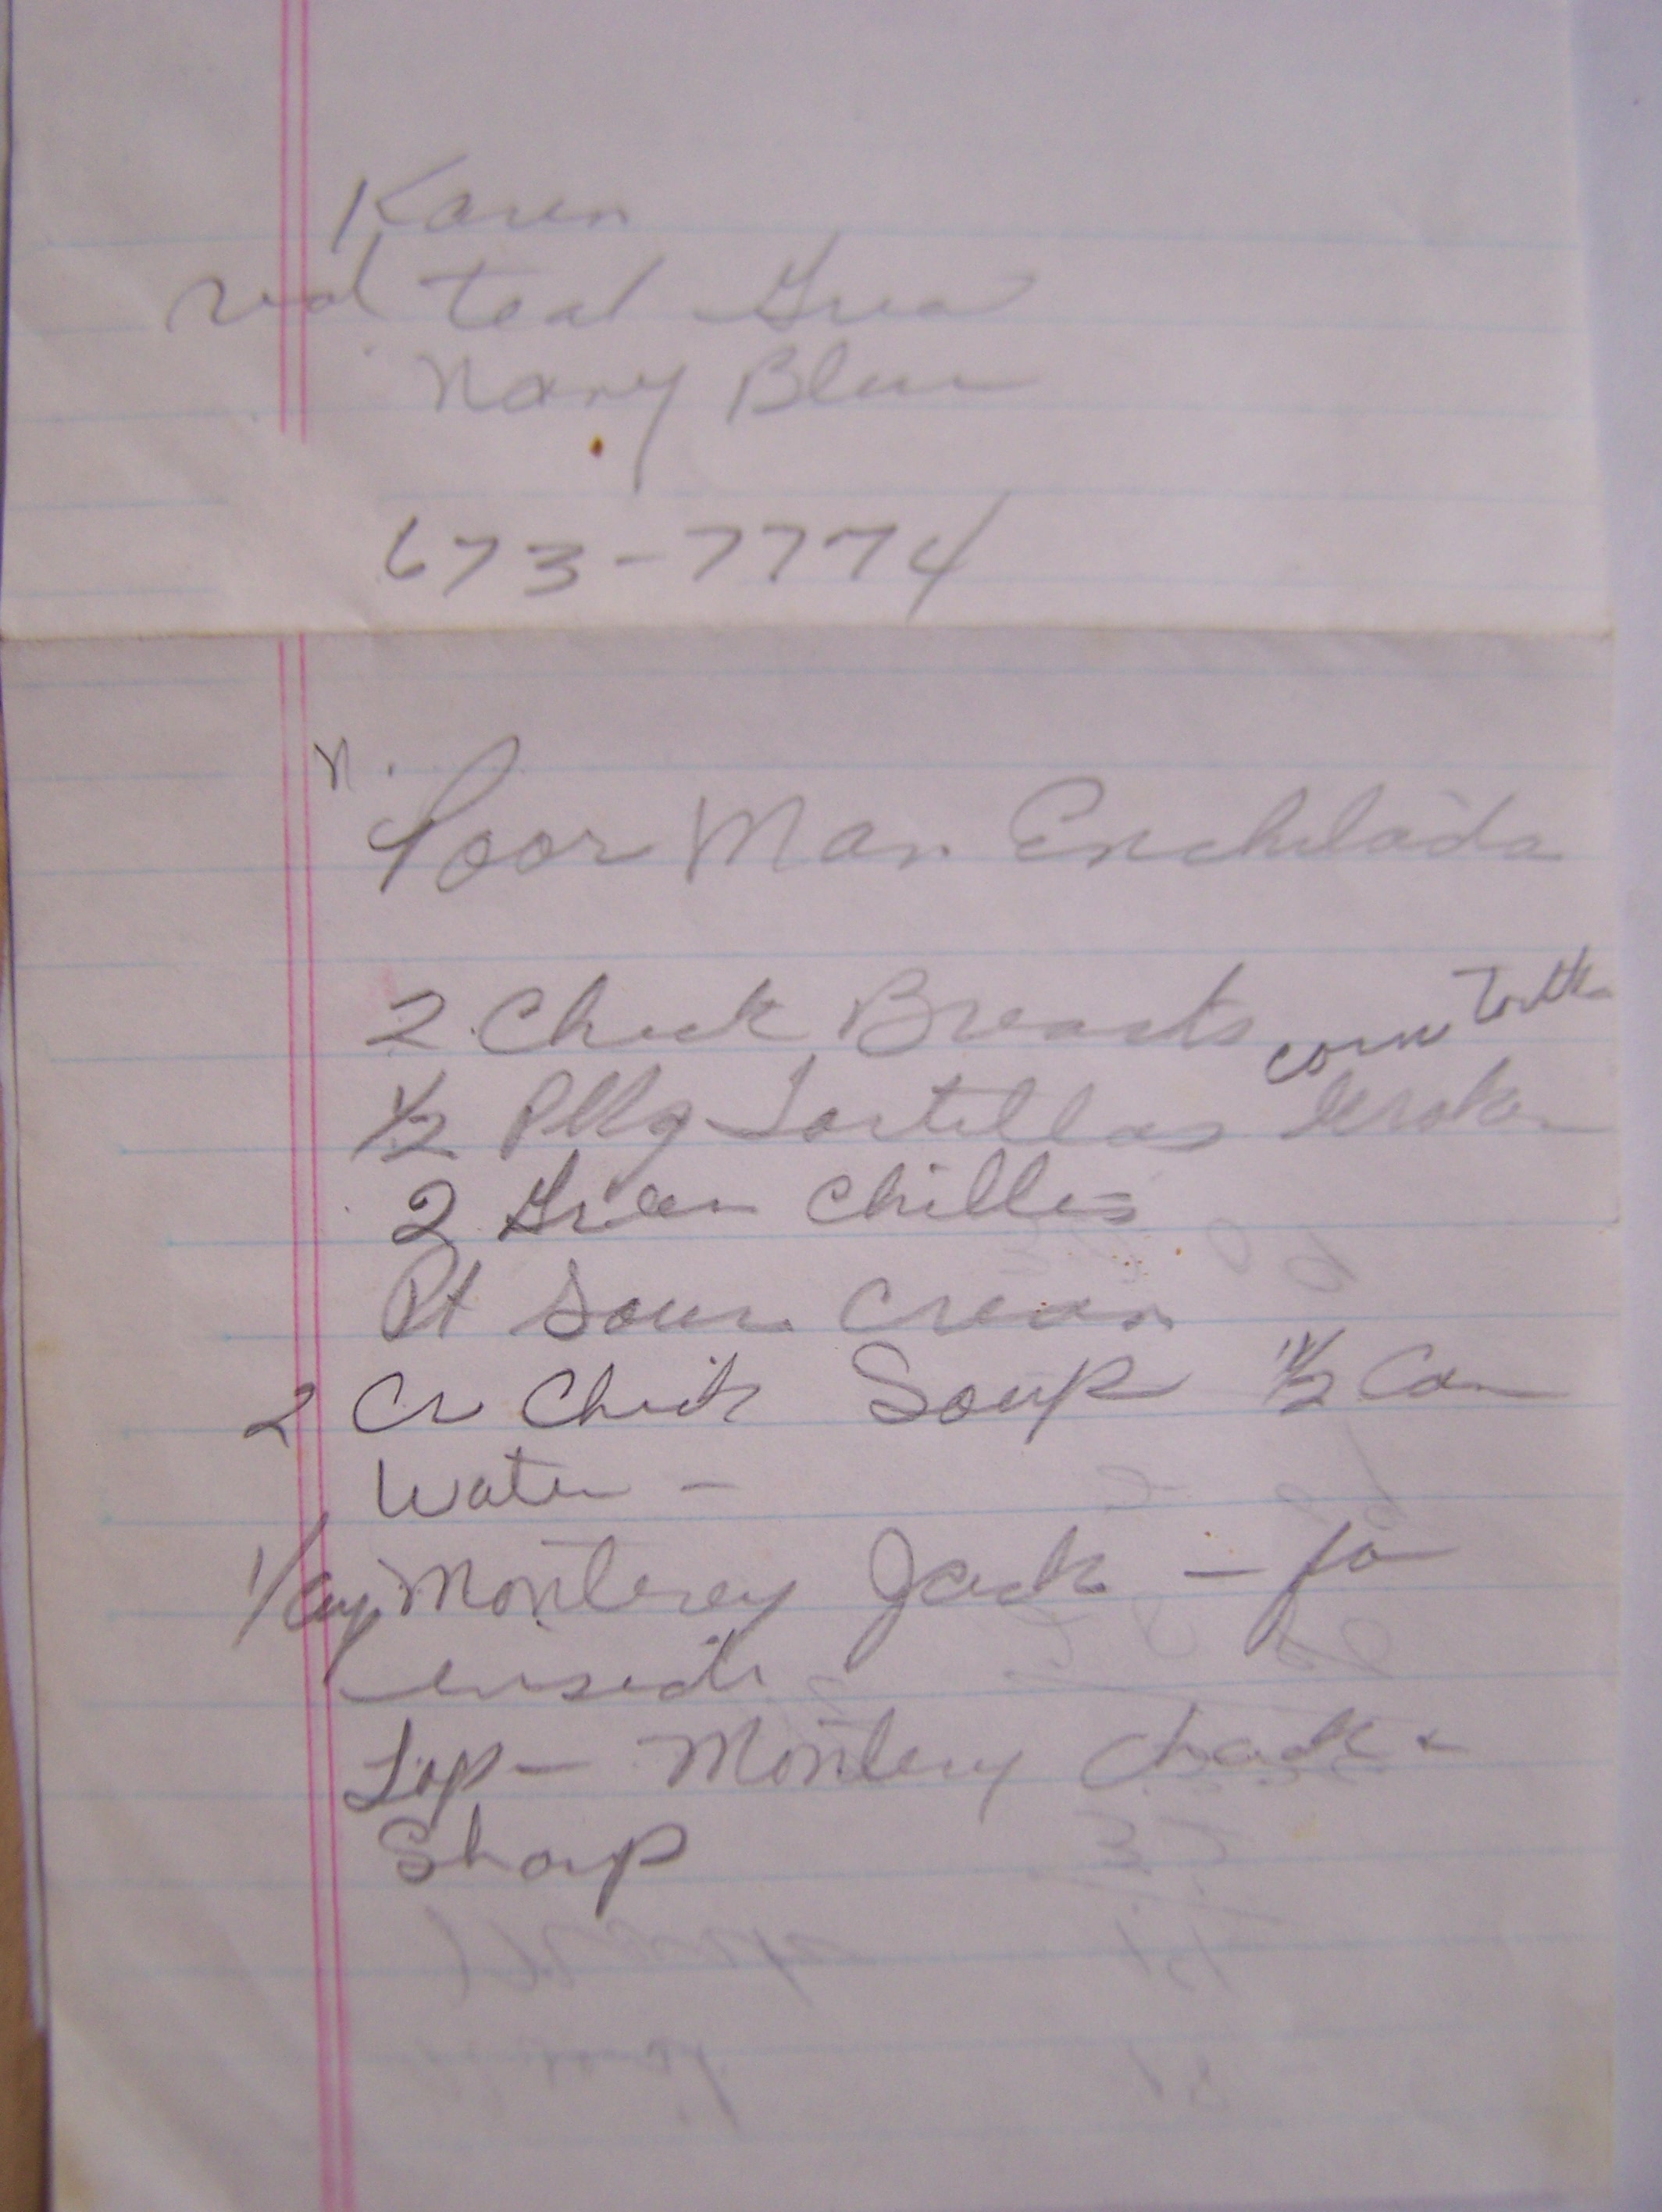 Karen
red teal Green
Navy Blue
673-7774
n.
Poor Man Enchilada
2 Chick Breasts
corn Tortilla
1/2 Pkg Tortillas broken
2 Green Chilles
Pt Sour Cream
2 Cr Chick Soup 1 1/2 Can
Water -
1/cup Monterey Jack - for
inside
Top - Montery
Sharp